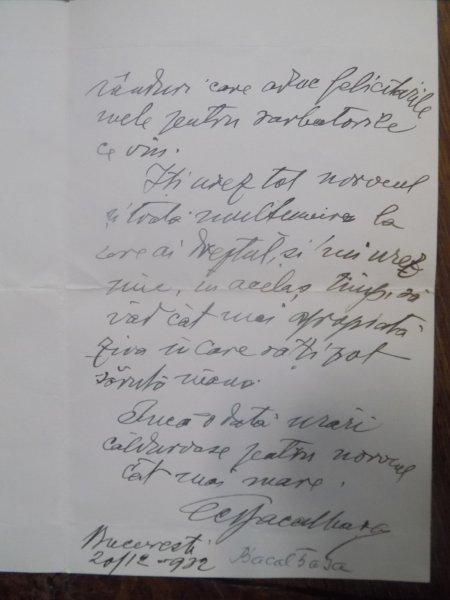 rânduri care aduc felicitările
mele pentru sarbatorile
ce vin.
Iți urez tot norocul
și toată mulțumirea la
care ai dreptul, și 'mi urez
mie, in acelaș timp, să
văd cât mai apropiată
ziva in care să'ți pot
săruta mâna.
Inca odată urări
călduroase pentru norocul
cât mai mare.
Bacalbașa
București
20/12 932 Bacalbașa